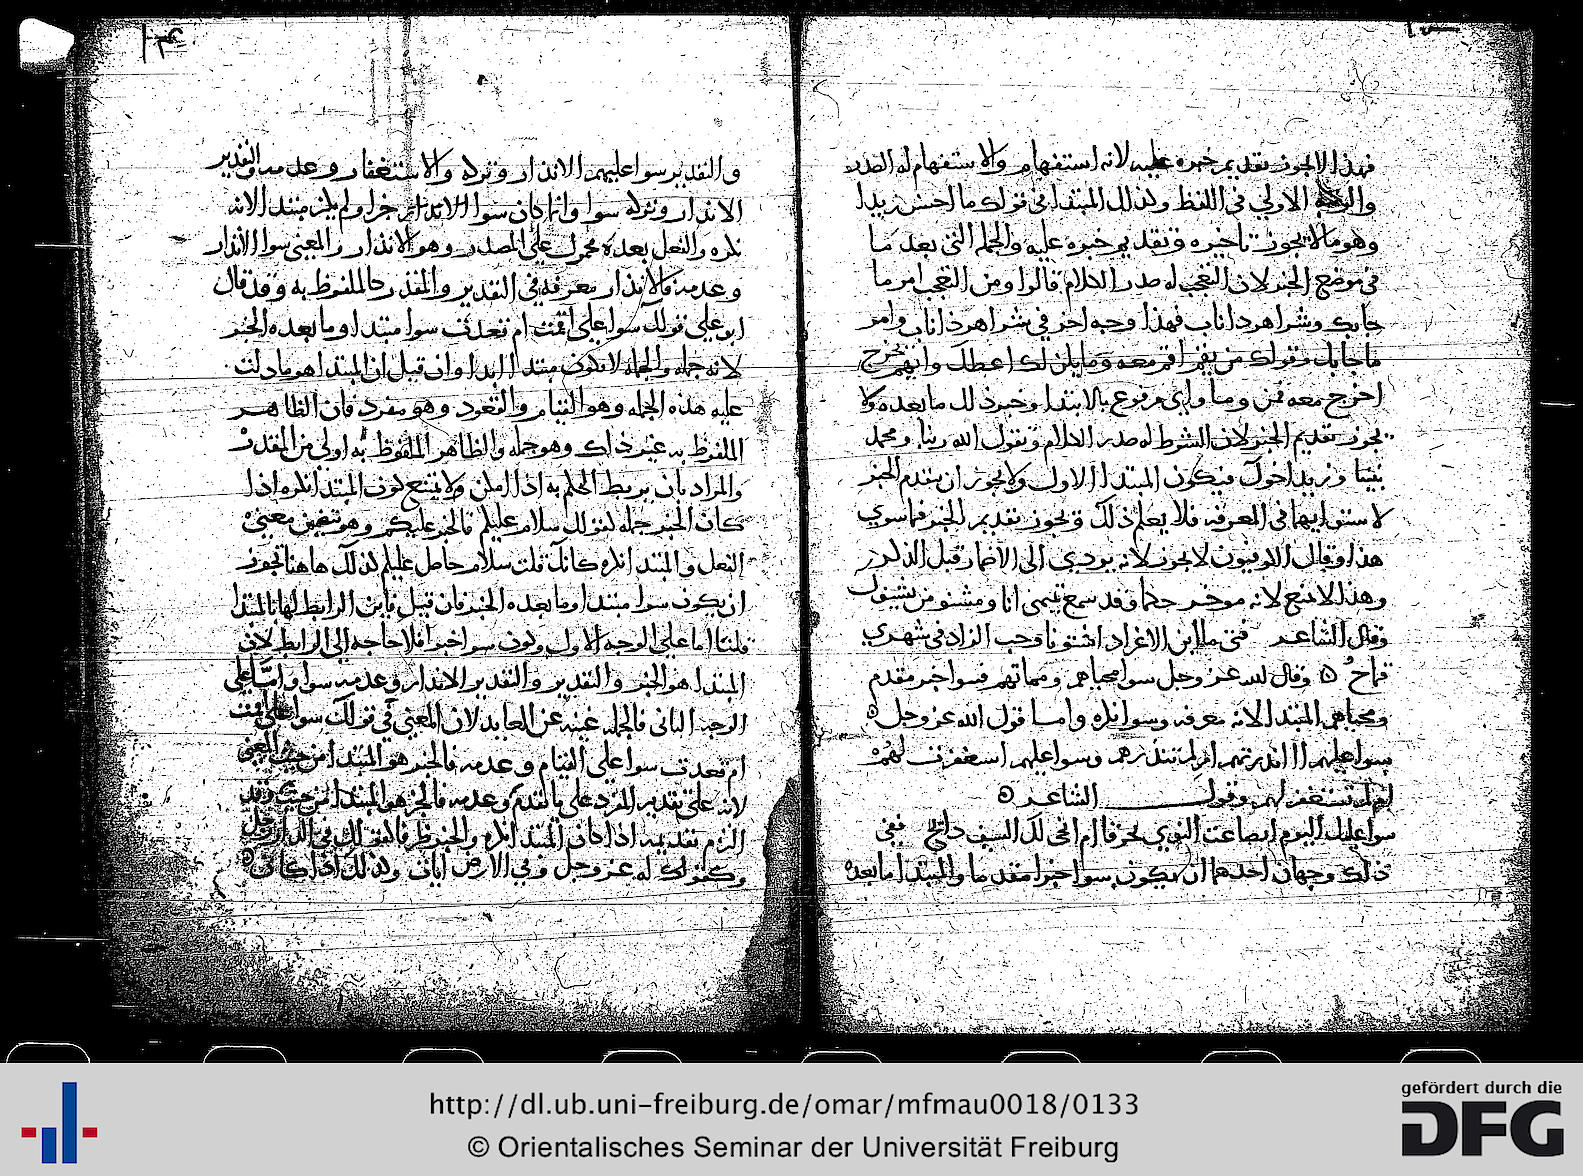 فهذا لا يجوز تقديم خبره عليه لانه استفهام والاستفهام له الصدر
الاولي في اللفظ وكذلك المبتدا في قولك ما احسن زيدا
وهو مما لا يجوز تاخيره وتقديم خبره عليه والجمله التي بعد ما
في موضع الخبر لان التعجب له صدر الكلام قالوا ومن التعجب امر ما
جابك وشر اهر ذا ناب فهذا وجه اخر في شر اهر ذا ناب وامر
ما جابك وقولك من يقم اقم معه وما يكن لك اعطك وايهم يخرج
اخرج معه فمن وما واي مرفوع بالابتدا وخبر ذلك ما بعده ولا
يجوز تقديم الخبر لان الشرط له صدر الكلام وتقول الله ربنا ومحمد
نبينا وزيد اخوك فيكون المبتدا الاول ولا يجوز ان يتقدم الخبر
لاستوايهما في المعرفه فلا يعلم ذلك ويجوز تقديم الخبر فيما سوي
هذا وقال الكوفيون لا يجوز لانه يودي الى الاضمار قبل الذكر
وهذا لا يمتنع لانه موخر حكما وقد سمع تميمي انا ومشنو من يشنوك
وقال الشاعر فتى ما ابن الاغر اذا شتونا وحب الزاد في شهري
قماح وقال الله عز وجل سوا محياهم ومماتهم فسوا خبر مقدم
ومحياهم المبتدا لانه معرفه وسوا نكره واما قول الله عز وجل
سوا عليهم ااانذرتهم ام لم تنذرهم وسوا عليهم استغفرت لهم
ام لم تستغفر لهم وقول الشاعر
سوا عليك اليوم انصاعت النوي بخرقا ام انحى لك السيف ذابح ففي
ذلك وجهان احدهما ان يكون سوا خبرا مقدما والمبتدا ما بعده
والتقدير سوا عليهم الانذار وتركه والاستغفار وعدمه والتقدير
الانذار وتركه سوا وانما كان سوا الانذار خبرا ولم يكن مبتدا لانه
نكره والفعل بعده محمول على المصدر وهو الانذار والمعنى سوا الانذار
وعدمه فالانذار معرفه في التقدير والمقدر كالملفوظ به وقد قال
ابو علي قولك سوا علي اقمت ام قعدت سوا مبتدا وما بعده الخبر
لانه جمله والجمله لا تكون مبتدا ابدا وان قيل ان المبتدا هو ما دلت
عليه هذه الجمله وهو القيام والقعود وهو مفرد فان الظاهر
الملفوظ به غير ذلك وهو جمله والظاهر الملفوظ به اولى من المقدر
والمراد بان يربط الحكم به اذا امكن ولا يمتنع كون المبتدا نكره اذا
كان الخبر جمله كقولك سلام عليكم فالخبر عليكم وهو متضمن معنى
الفعل والمبتدا نكره كانك قلت سلام حاصل عليكم كذلك هاهنا يجوز
ان يكون سوا مبتدا وما بعده الخبر فان قيل فاين الرابط لها بالمبتدا
قلنا اما على الوجه الاول وكون سوا خبرا فلا حاجه الى الرابط لان
المبتدا هو الخبر والتقدير والتقدير الانذار وعدمه سوا واما على
الوجه الثاني فالجمله غنيه عن العايد لان المعنى في قولك سوا علي اقمت
ام قعدت سوا علي القيام وعدمه فالخبر هو المبتدا من حيث المعنى
لانه على تقدير المفرد وعدمه فالخبر هو المبتدا من حيث
الزم تقديمه اذا كان المبتدا نكره والخبر ظرفا كقولك في الدار رجل
وكقوله عز وجل وفي الارض ايات وكذلك اذا كان
http://dl.ub.uni-freiburg.de/omar/mfmau0018/0133
© Orientalisches Seminar der Universität Freiburg
gefördert durch die
DFG